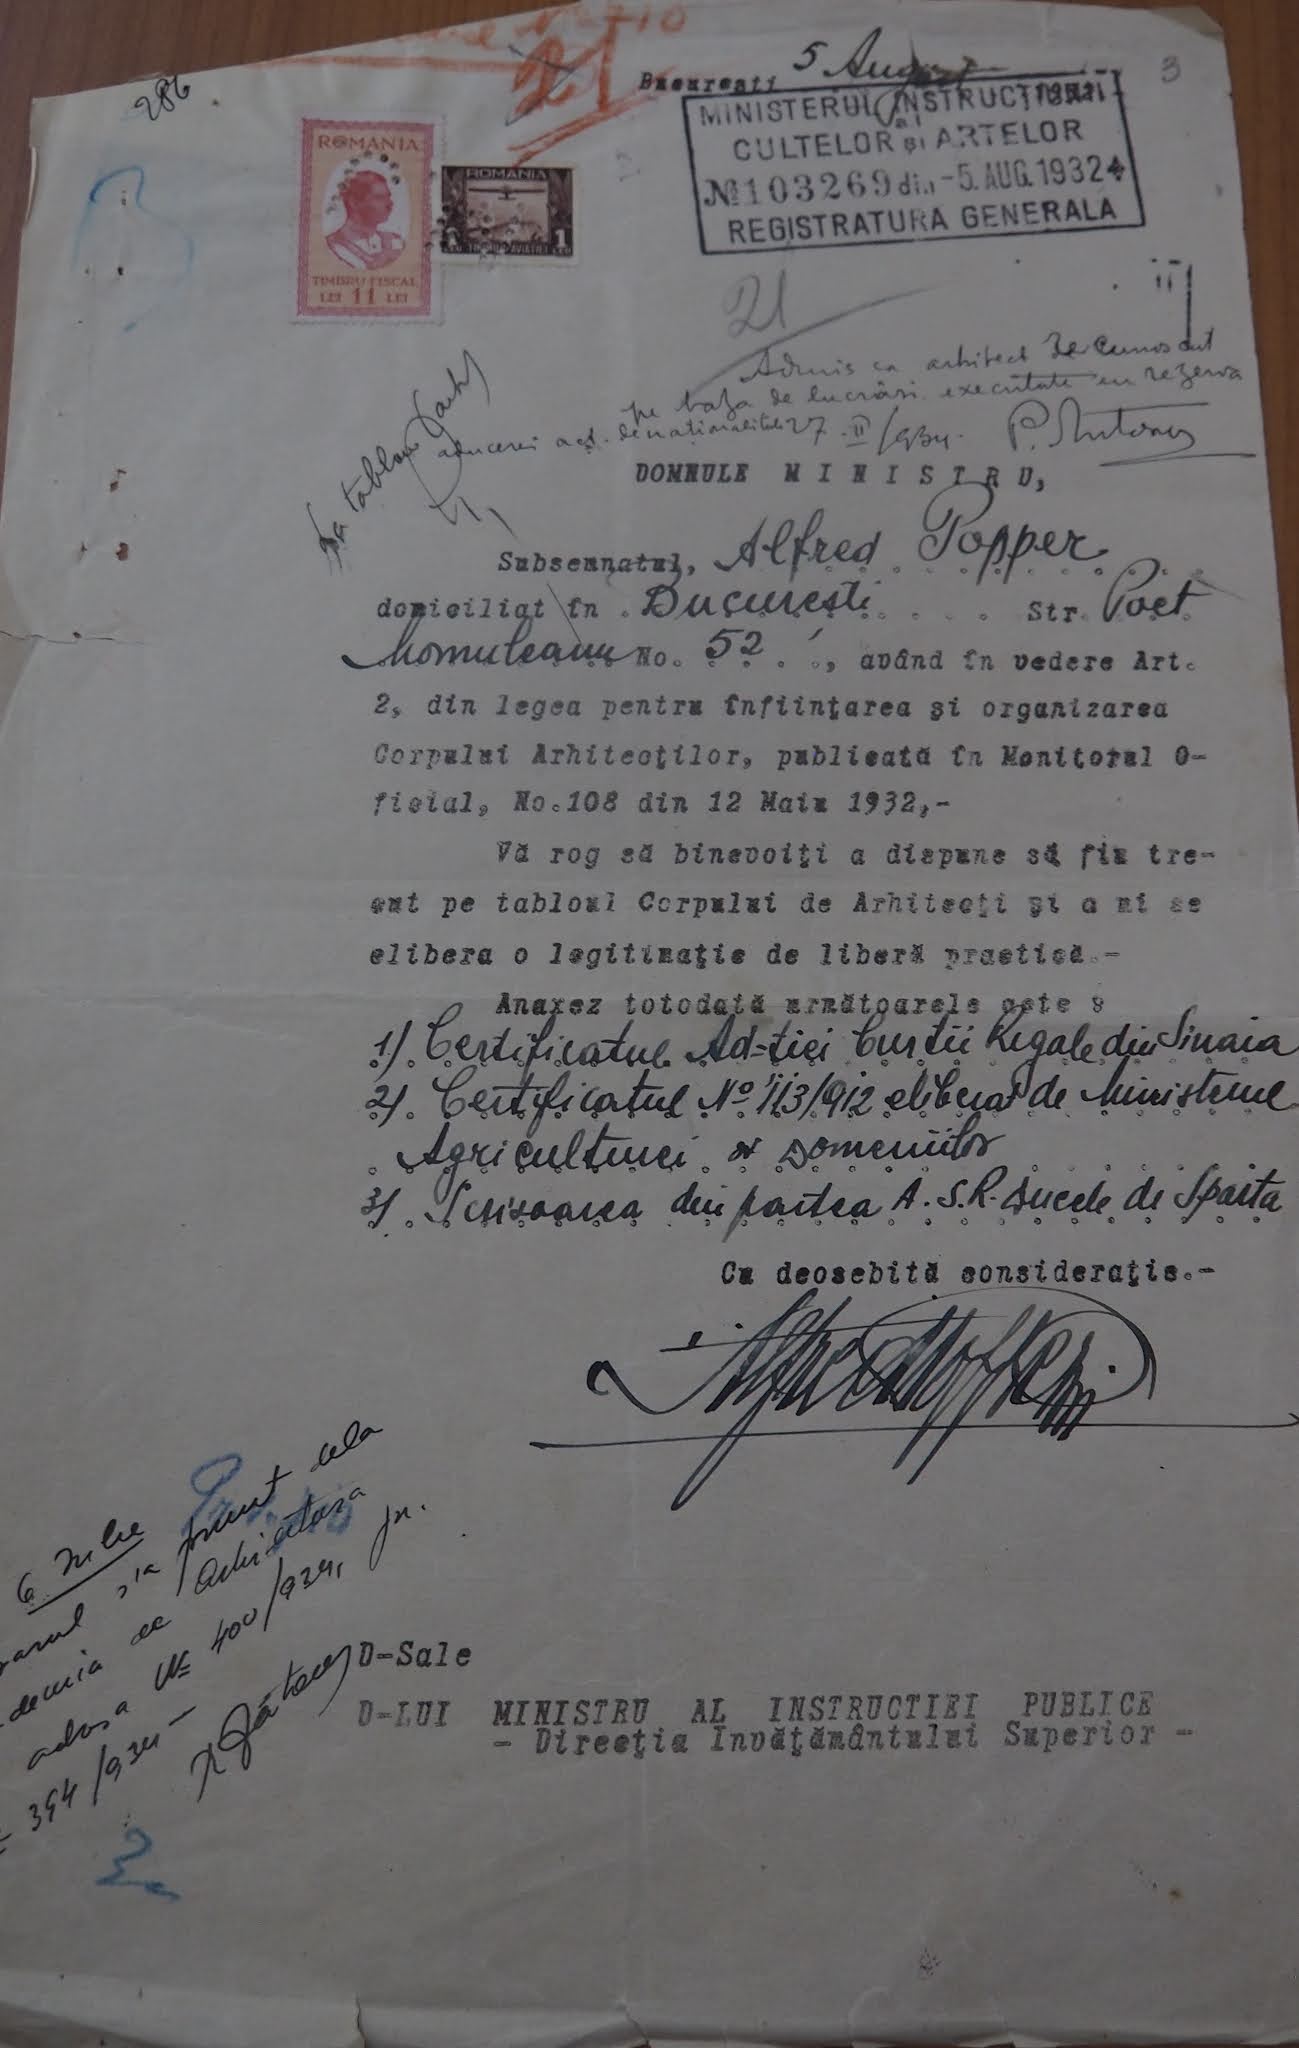 286
Bucureşti 5 August
3
MINISTERUL INSTRUCŢIUNII
CULTELOR şi ARTELOR
№ 103269 din -5. AUG. 1932
REGISTRATURA GENERALA
ROMANIA
TIMBRU FISCAL
LEI 11 LEI
ROMANIA
1 LEU TIMBRUL AVIAŢIEI 1 LEU
21
Admis ca arhitect recunoscut
pe baza de lucrări executate cu rezerva
aducerei act. de naţionalitate 27.II/934. P. Antonescu
La tablou
DOMNULE MINISTRU,
Subsemnatul, Alfred Popper
domiciliat în Bucureşti Str. Poet
Momuleanu No. 52, având în vedere Art.
2, din legea pentru înfiinţarea şi organizarea
Corpului Arhitecţilor, publicată în Monitorul O-
ficial, No.108 din 12 Maiu 1932,-
Vă rog să binevoiţi a dispune să fiu tre-
cut pe tabloul Corpului de Arhitecţi şi a mi se
elibera o legitimaţie de liberă practică.-
Anaxez totodată următoarele acte :
1) Certificatul Ad-ţiei Curtii Regale din Sinaia
2) Certificatul No 113/912 eliberat de Ministerul
Agriculturei si Domeniilor
3) Scrisoarea din partea A.S.R. Ducele de Sparta
Cu deosebită consideraţie.-
Alfred Popper
6 Iulie
s'a primit dela
de Arhitectura
adresa № 400/934,
394/934
D-Sale
D-LUI MINISTRU AL INSTRUCTIEI PUBLICE
- Direcţia Invăţământului Superior -